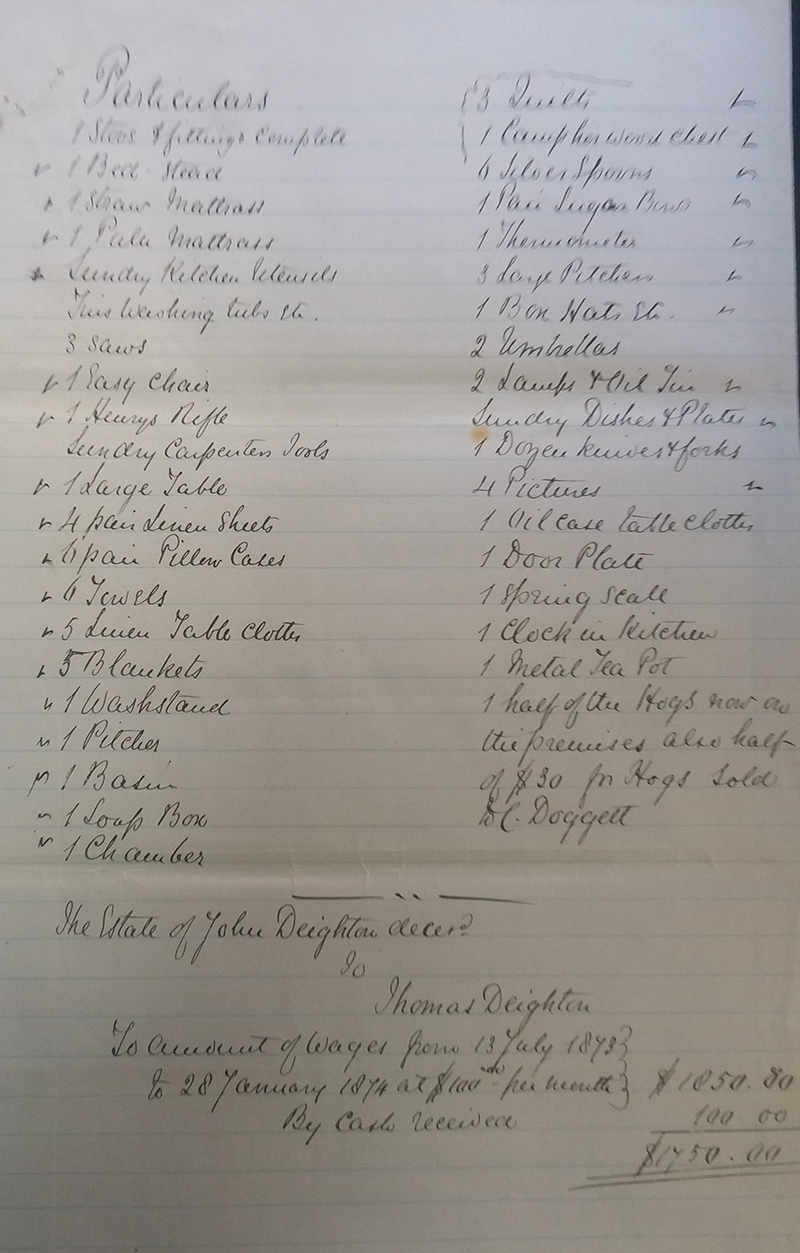 Particulars
1 Stove & fittings Complete
1 Bed Stead
1 Straw Mattrass
1 Pulu Mattrass
Sundry Kitchen Utensels
Tins Washing tubs Etc.
3 Saws
1 Easy Chair
1 Henrys Rifle
Sundry Carpenters Tools
1 Large Table
4 pair Linen Sheets
6 pair Pillow Cases
6 Towels
5 Linen Table Cloths
5 Blankets
1 Washstand
1 Pitcher
1 Basin
1 Soap Box
1 Chamber
3 Quilts
1 Camphor wood Chest
6 Silver Spoons
1 Pair Sugar Bows
1 Thermometer
3 Large Pitchers
1 Box Hats Etc.
2 Umbrellas
2 Lamps & Oil Tin
Sundry Dishes & Plates
1 Dozen knives & forks
4 Pictures
1 Oil case table cloths
1 Door Plate
1 Spring Scale
1 Clock in Kitchen
1 Metal Tea Pot
1 half of the Hogs now on
the premises also half
of $30 for Hogs Sold
Doggett
The Estate of John Deighton
To
Thomas Deighton
To amount of Wages from 13 July 1873
to 28 January 1874 at $100 per month $1850.00
By Cash received 100.00
$1750.00